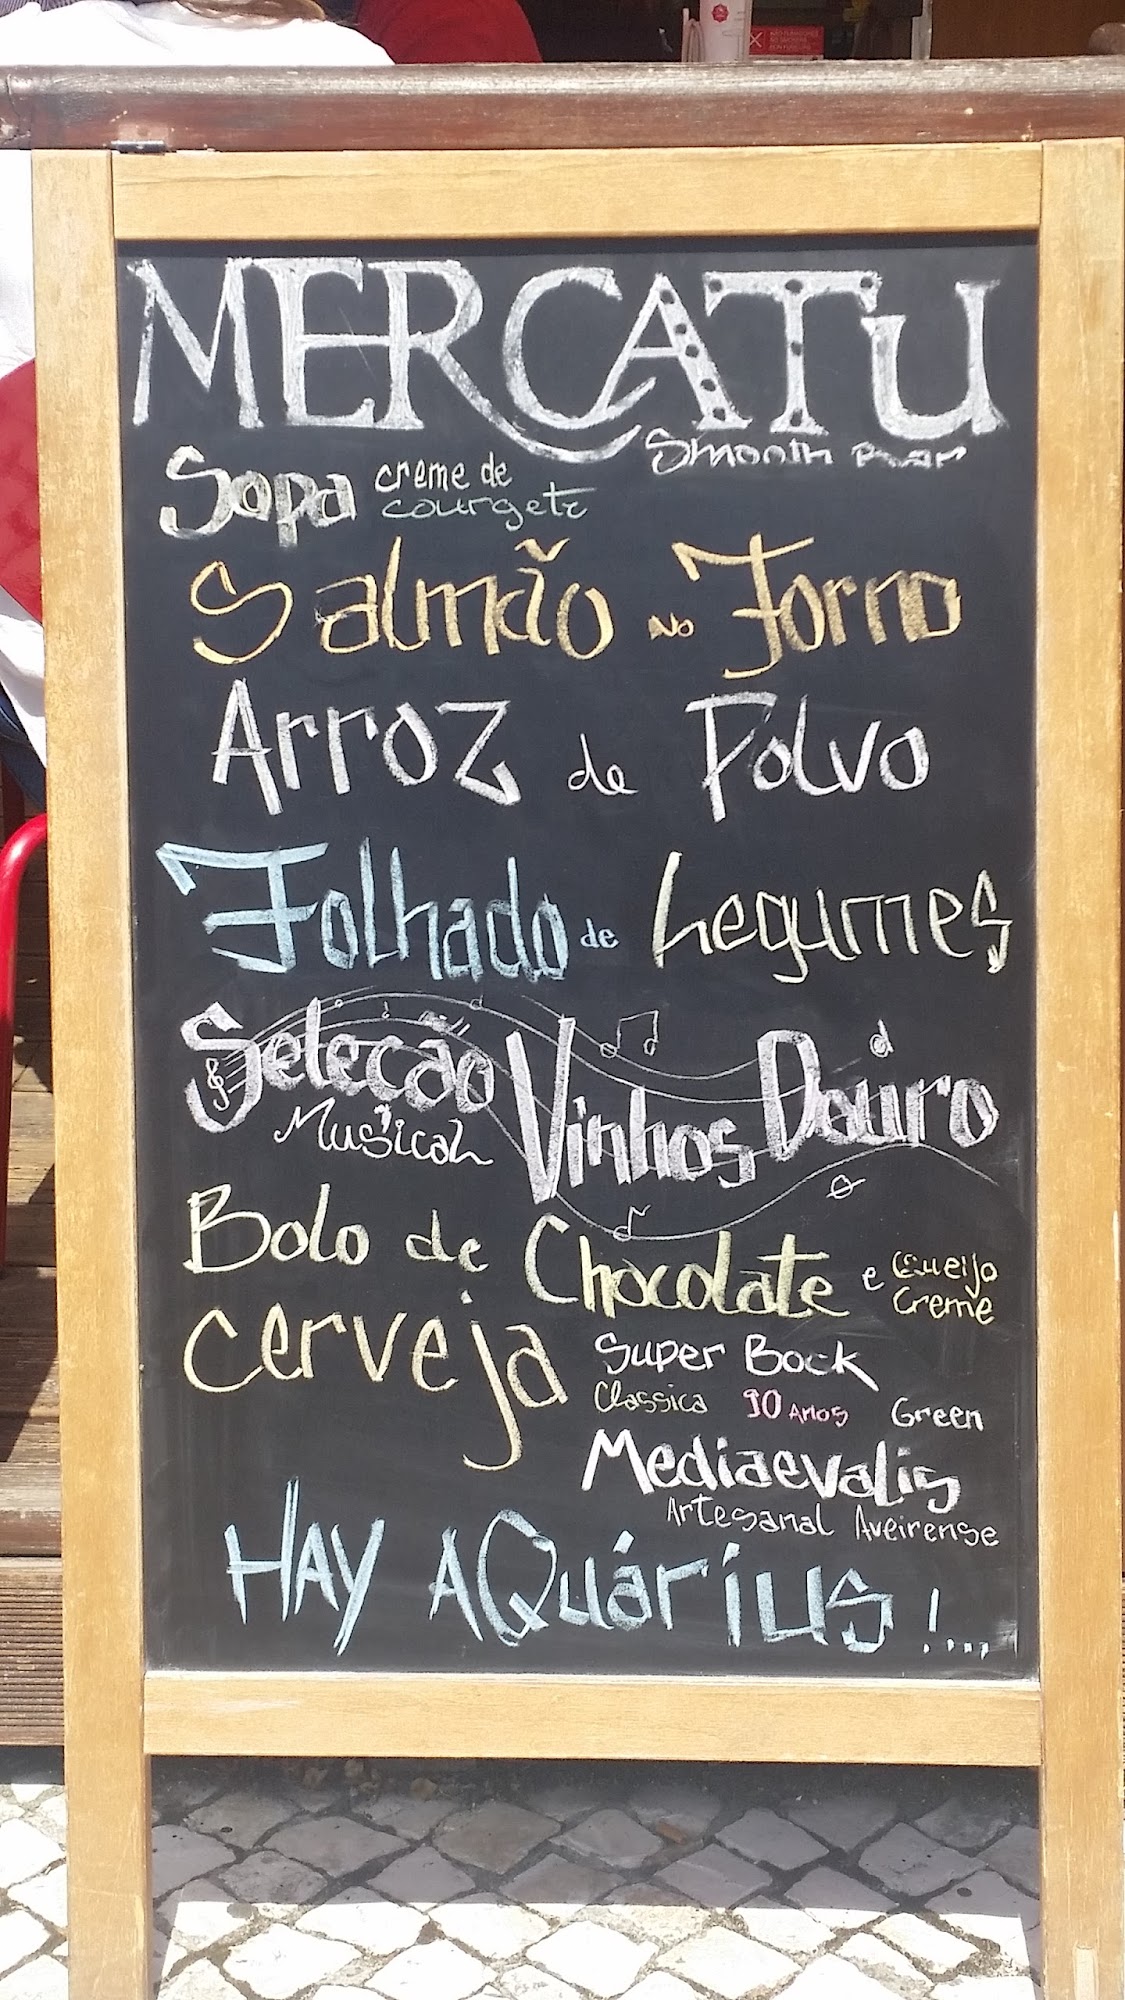 MERCATU
Smooth
Sopa creme de
courgete
Salmão no Forno
Arroz de Polvo
Folhado de Legumes
Seleção Vinhos Douro
Musical
Bolo de Chocolate e Queijo
Creme
Cerveja Super Bock
Classica 90 Anos Green
Mediaevalis
Artesanal Aveirense
HAY AQuárius !...